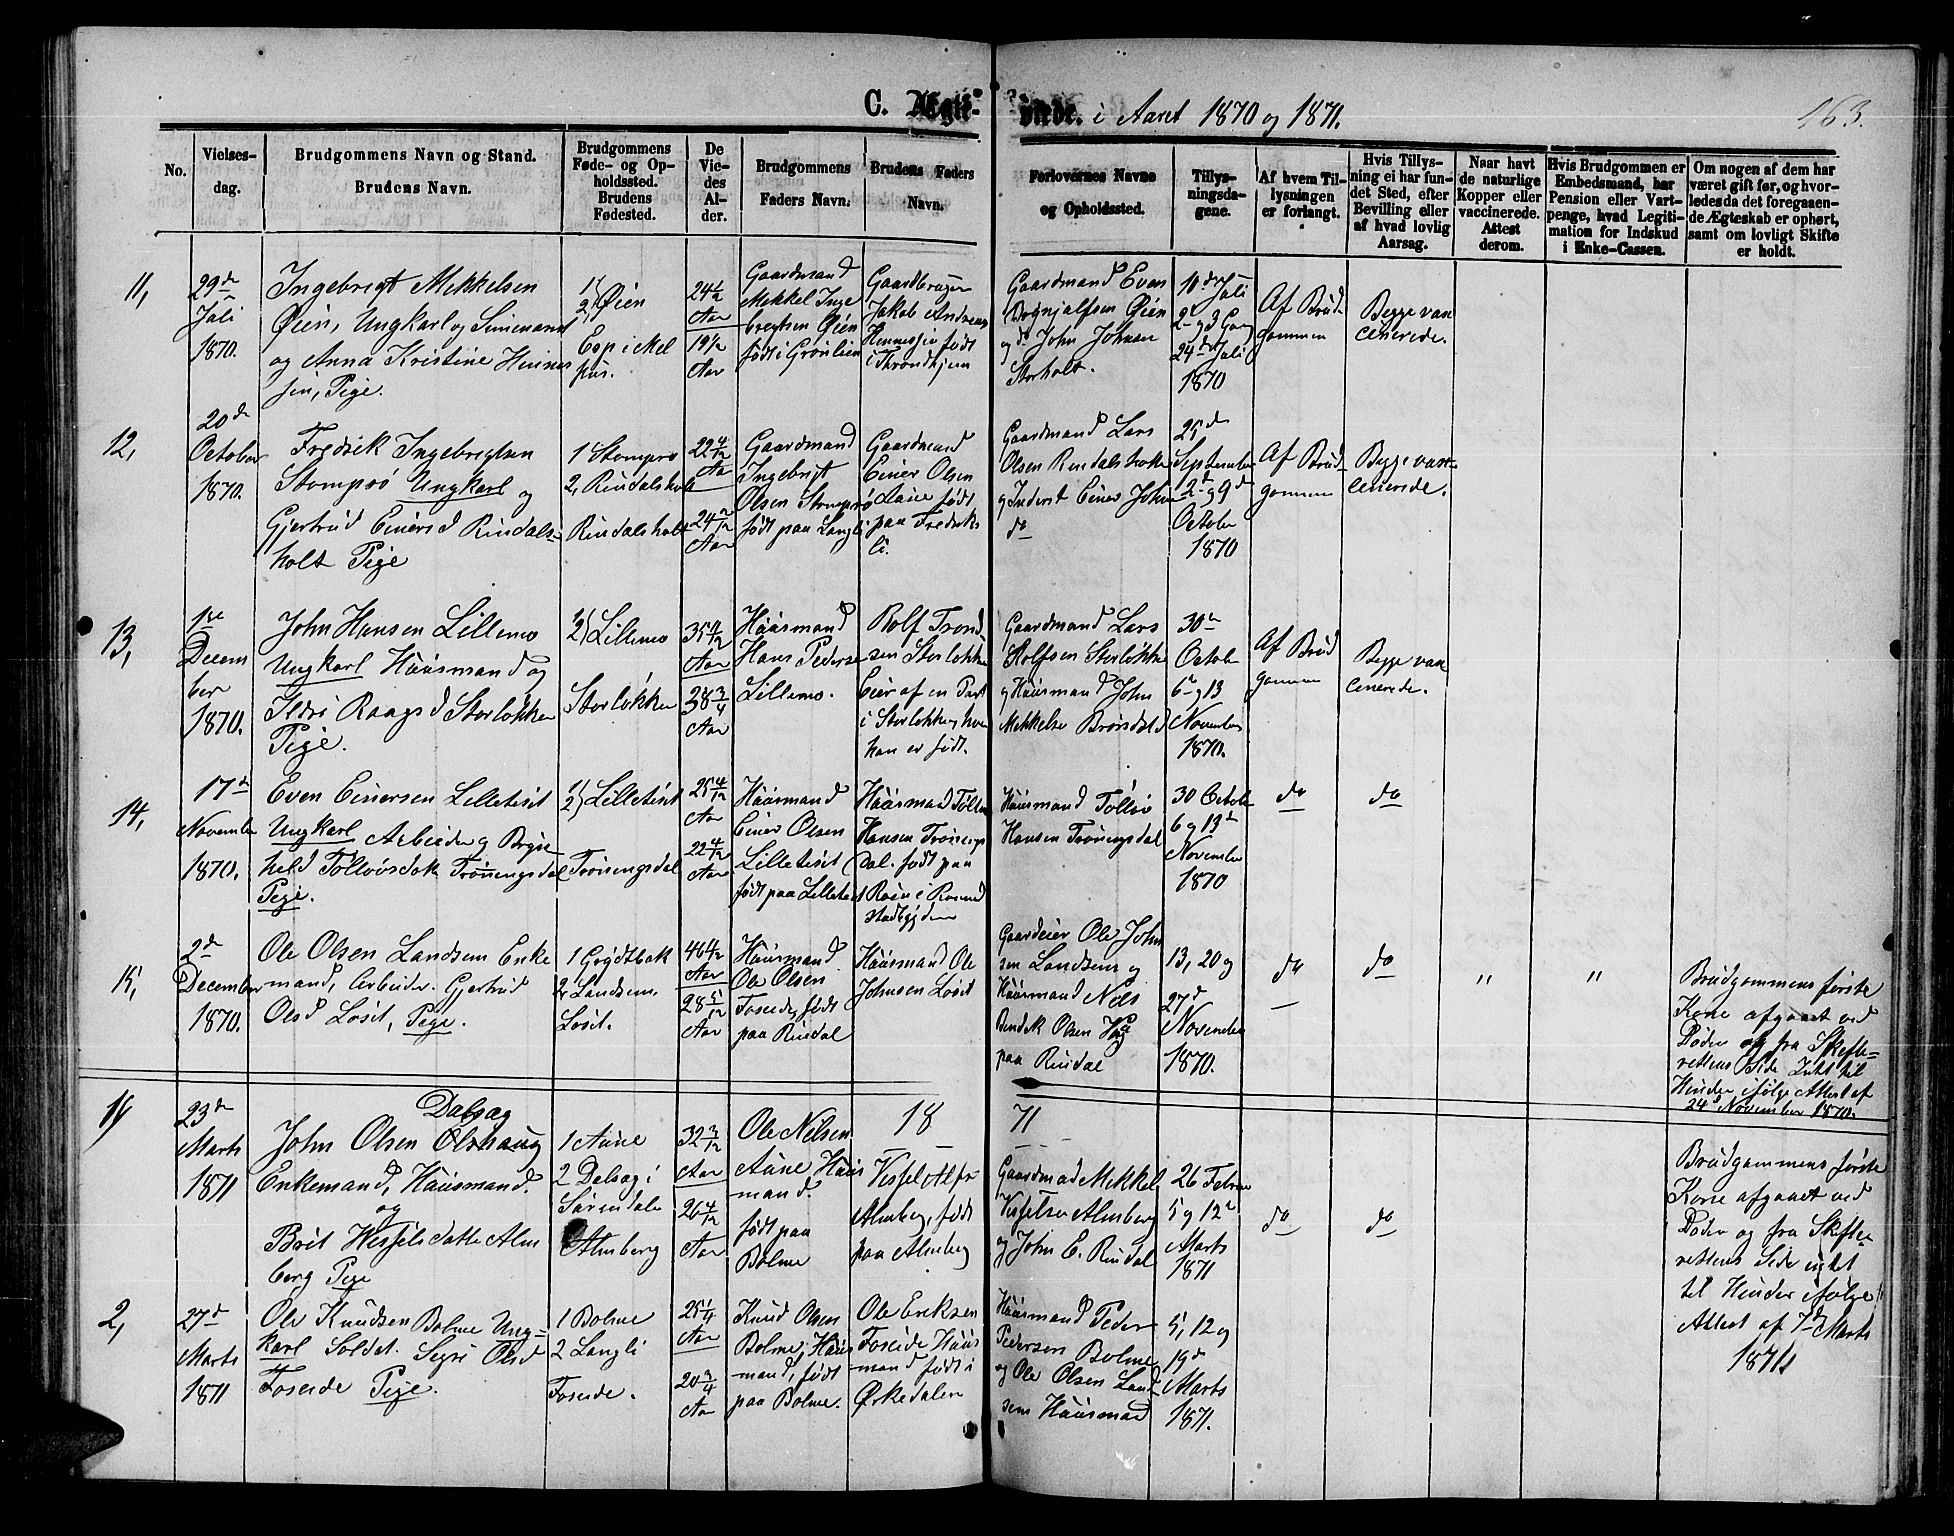 C. Ægte-
viede. i Aaret 1870 og 1871.
163.
No.
Vielses-
dag.
Brudgommens Navn og Stand.
Brudens Navn.
Brudgommens
Føde- og Op-
holdssted.
Brudens
Fødested.
De
Vie-
des
Al-
der.
Brudgommens
Faders Navn.
Brudens Faders
Navn.
Forlovernes Navne
og Opholdssted.
Tillys-
ningsda-
gene.
Af hvem Til-
lysningen
er forlangt.
Hvis Tillys-
ning ei har fun-
det Sted, efter
Bevilling eller
af hvad lovlig
Aarsag.
Naar havt
de naturlige
Kopper eller
vaccinerede.
Attest
derom.
Hvis Brudgommen er
Embedsmand, har
Pension eller Vart-
penge, hvad Legiti-
mation for Indskud
i Enke-Cassen.
Om nogen af dem har
været gift før, og hvor-
ledes da det foregaaen-
de Ægteskab er ophørt,
samt om lovligt Skifte
er holdt.
11,
29de
Juli
1870.
Ingebrigt Mekkelsen
Øien, Ungkarl og
og Anna Kristine Hennes
sen, Pige.
1)
2) Øien
24 1/2
Aar
19 1/2
Aar
Gaardmand
Mekkel Inge
brigtsen Øien
født i Grønlien
Gaardbruger
Jakob Andreas
født
i Throndhjem
Gaardmand Even
Øien
og do John Johnsen
Storholt.
10de Juli
2 og 3 Gang
24de Juli
1870
Af Brud-
gommen
Begge vac
cinerede.
12,
20de
October
1870.
Fredrik Ingebrigtsen
Stomprø Ungkarl og
Gjertrud Einersd Rindals-
holt Pige
1 Stomprø
2, Rindalsholt
Rindalsholt
22 4/12
Aar
24 2/12
Aar
Gaardmand
Ingebrigt
Olsen Stomprø
født paa Langli
Gaardmand
Einer Olsen
født
paa Fredriks
li.
Gaardmand Lars
Olsen Rindalsholt
og Inderst Einer John
do
25de
September
2de og 9de
October
1870
Af Brud-
gommen
Begge vac-
cinerede.
13,
1ste
Decem
ber
1870.
John Hansen Lillemo
Ungkarl Huusmand og
Ildri Raagsd Storløkken
Pige.
1)
2) Lillemo
Storløkken
Aar
38 3/4
Aar
Huusmand
Hans Peders
Lillemo.
Rolf Trond
sen Storløkken
Eier af en Part
i Storløkken, hvor
han er født.
Gaardmand Lars
Rolfsen Storløkken
og Huusmand John
Mekkelse Brønstad
30te
Octobe
6te og 13
November
1870.
Af Brud
gommen
Begge vac
cinerede.
14,
17de
November
1870.
Even Einersen Lilletiset
Ungkarl Arbeider og Bryn
hild Tollørsdatt Trøningsdal
Pige.
1)
2) Lilletiset
Trøningsdal
25 4/12
Aar
22 4/12
Aar
Huusmand
Einer Olsen
Lilletiset
født paa Lilletiset
Huusmand
Hansen Trønings
dal. født paa
Røen i
Stadbygden
Huusmand
Hansen Trøningsdal
30 Octobe
6 og 13de
November
1870
do
do
15,
2de
December
1870.
Ole Olsen Landsem Enke
mand, Arbeider. Gjertrud
Olsd Løset, Pige.
1 Grydtbak
2, Landsem.
Løset.
46 4/12
Aar
28 5/12
Aar
Huusmand
Ole Olsen
Foseide, født
paa Rindal
Huusmand Ole
Johnsen Løset
Gaardeier Ole John
sen Landsem og
Huusmand Nils
Bendik Olsen
paa Rindal
13, 20 og
27de
November
1870.
do
do
"
"
Brudgommens første
Kone afgaaet ved
Døden og fra Skifte-
rettens Side Intet til
Hinder, ifølge Attest af
24de November 1870.
18
71
1)
23de
Marts
1871
Dalsag
John Olsen Olshaug
Enkemand, Huusmand.
og
Brit Wesselsdatte Alm
berg Pige
1 Aune
2 Dalsag i
Surendalen
Almberg
32 3/12
Aar
26 4/12
Aar
Ole Nilsen
Aune Huus
mand.
født paa
Bolme
Vessel
Almberg, født
paa Almberg
Gaardmad Mekkel
Vesselsen Almberg
og John E. Rindal
26 Februar
5 og 12te
Marts
1871
do
do
Brudgommens første
Kone afgaaet ved
Døden og fra Skifte-
rettens Side intet
til Hinder ifølge
Attest af 7de Marts
1871
2,
27de
Marts
1871
Ole Knudsen Bolme Ung-
karl Soldat. Sigri Olsd
Foseide Pige.
1 Bolme
2 Langli
Foseide.
25 1/4
Aar
20 3/4
Aar
Knud Olsen
Bolme, Huus
mand, født
paa Bolme.
Ole Eriksen
Foseide Huus
mand født i
Ørkedalen
Huusmand Peder
Pedersen Bolme
og Ole Olsen Land
sem Huusmand
5, 12 og
19de
Marts
1871.